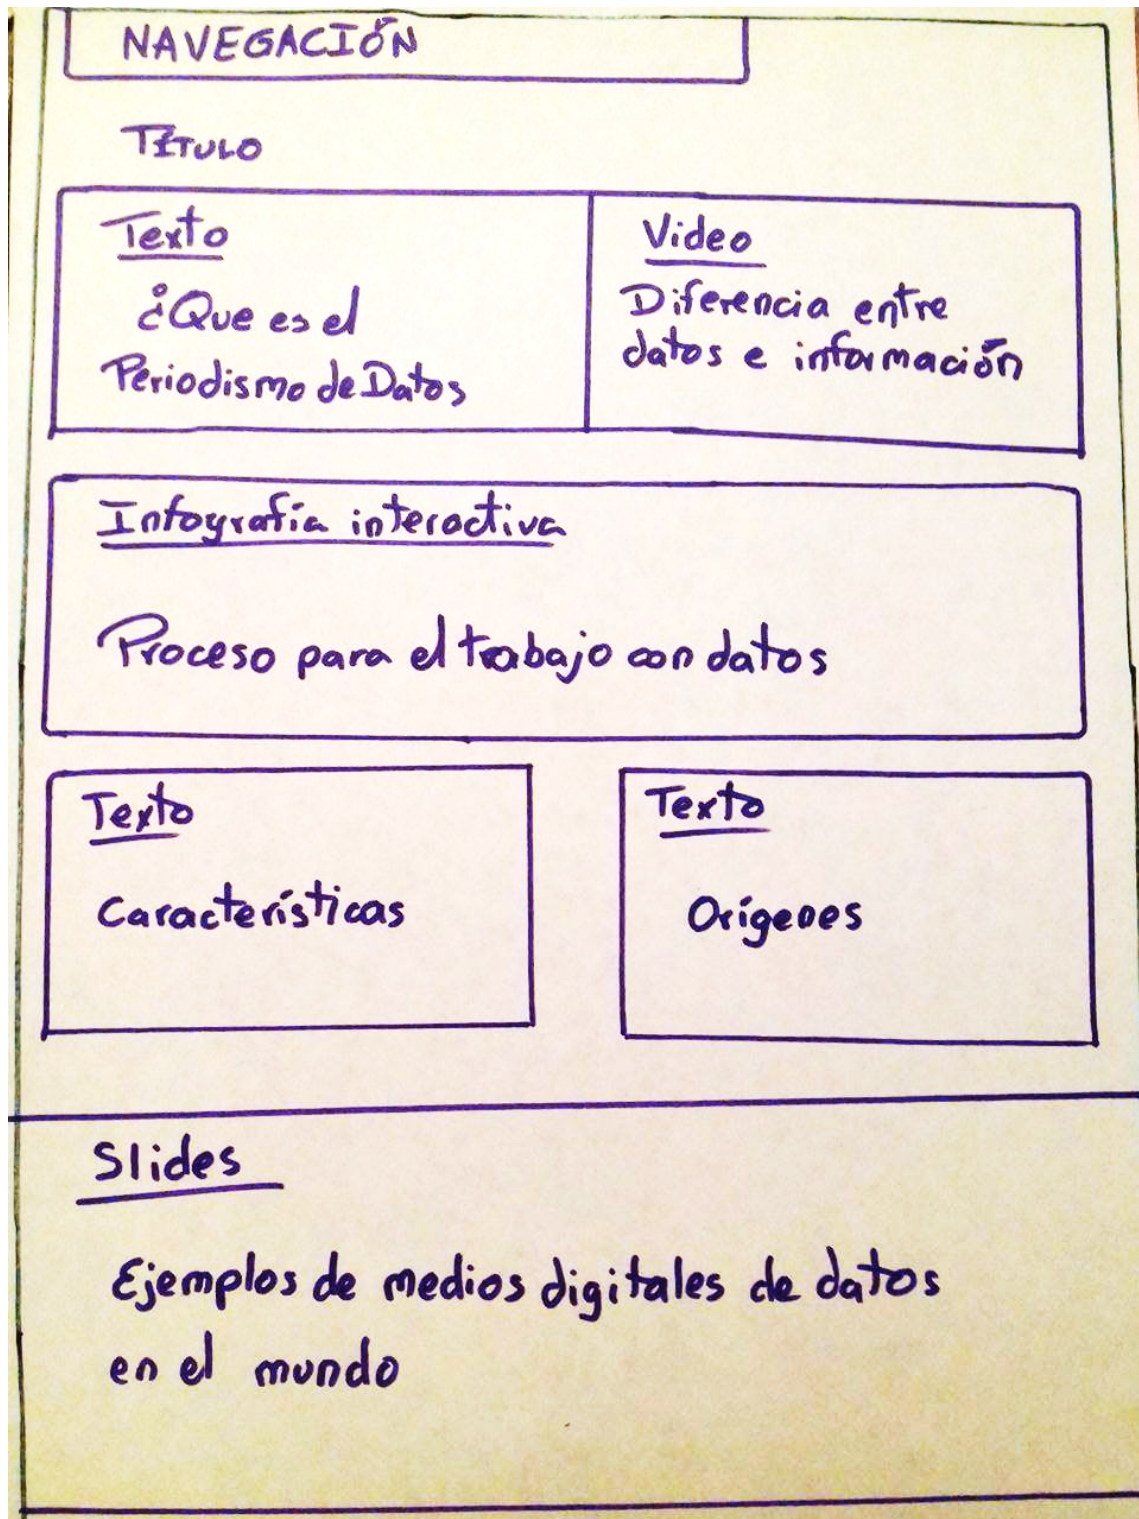 NAVEGACIÓN
TÍTULO
Texto
¿Que es el
Periodismo de Datos
Video
Diferencia entre
datos e información
Infografía interactiva
Proceso para el trabajo con datos
Texto
Características
Texto
Orígenes
Slides
Ejemplos de medios digitales de datos
en el mundo